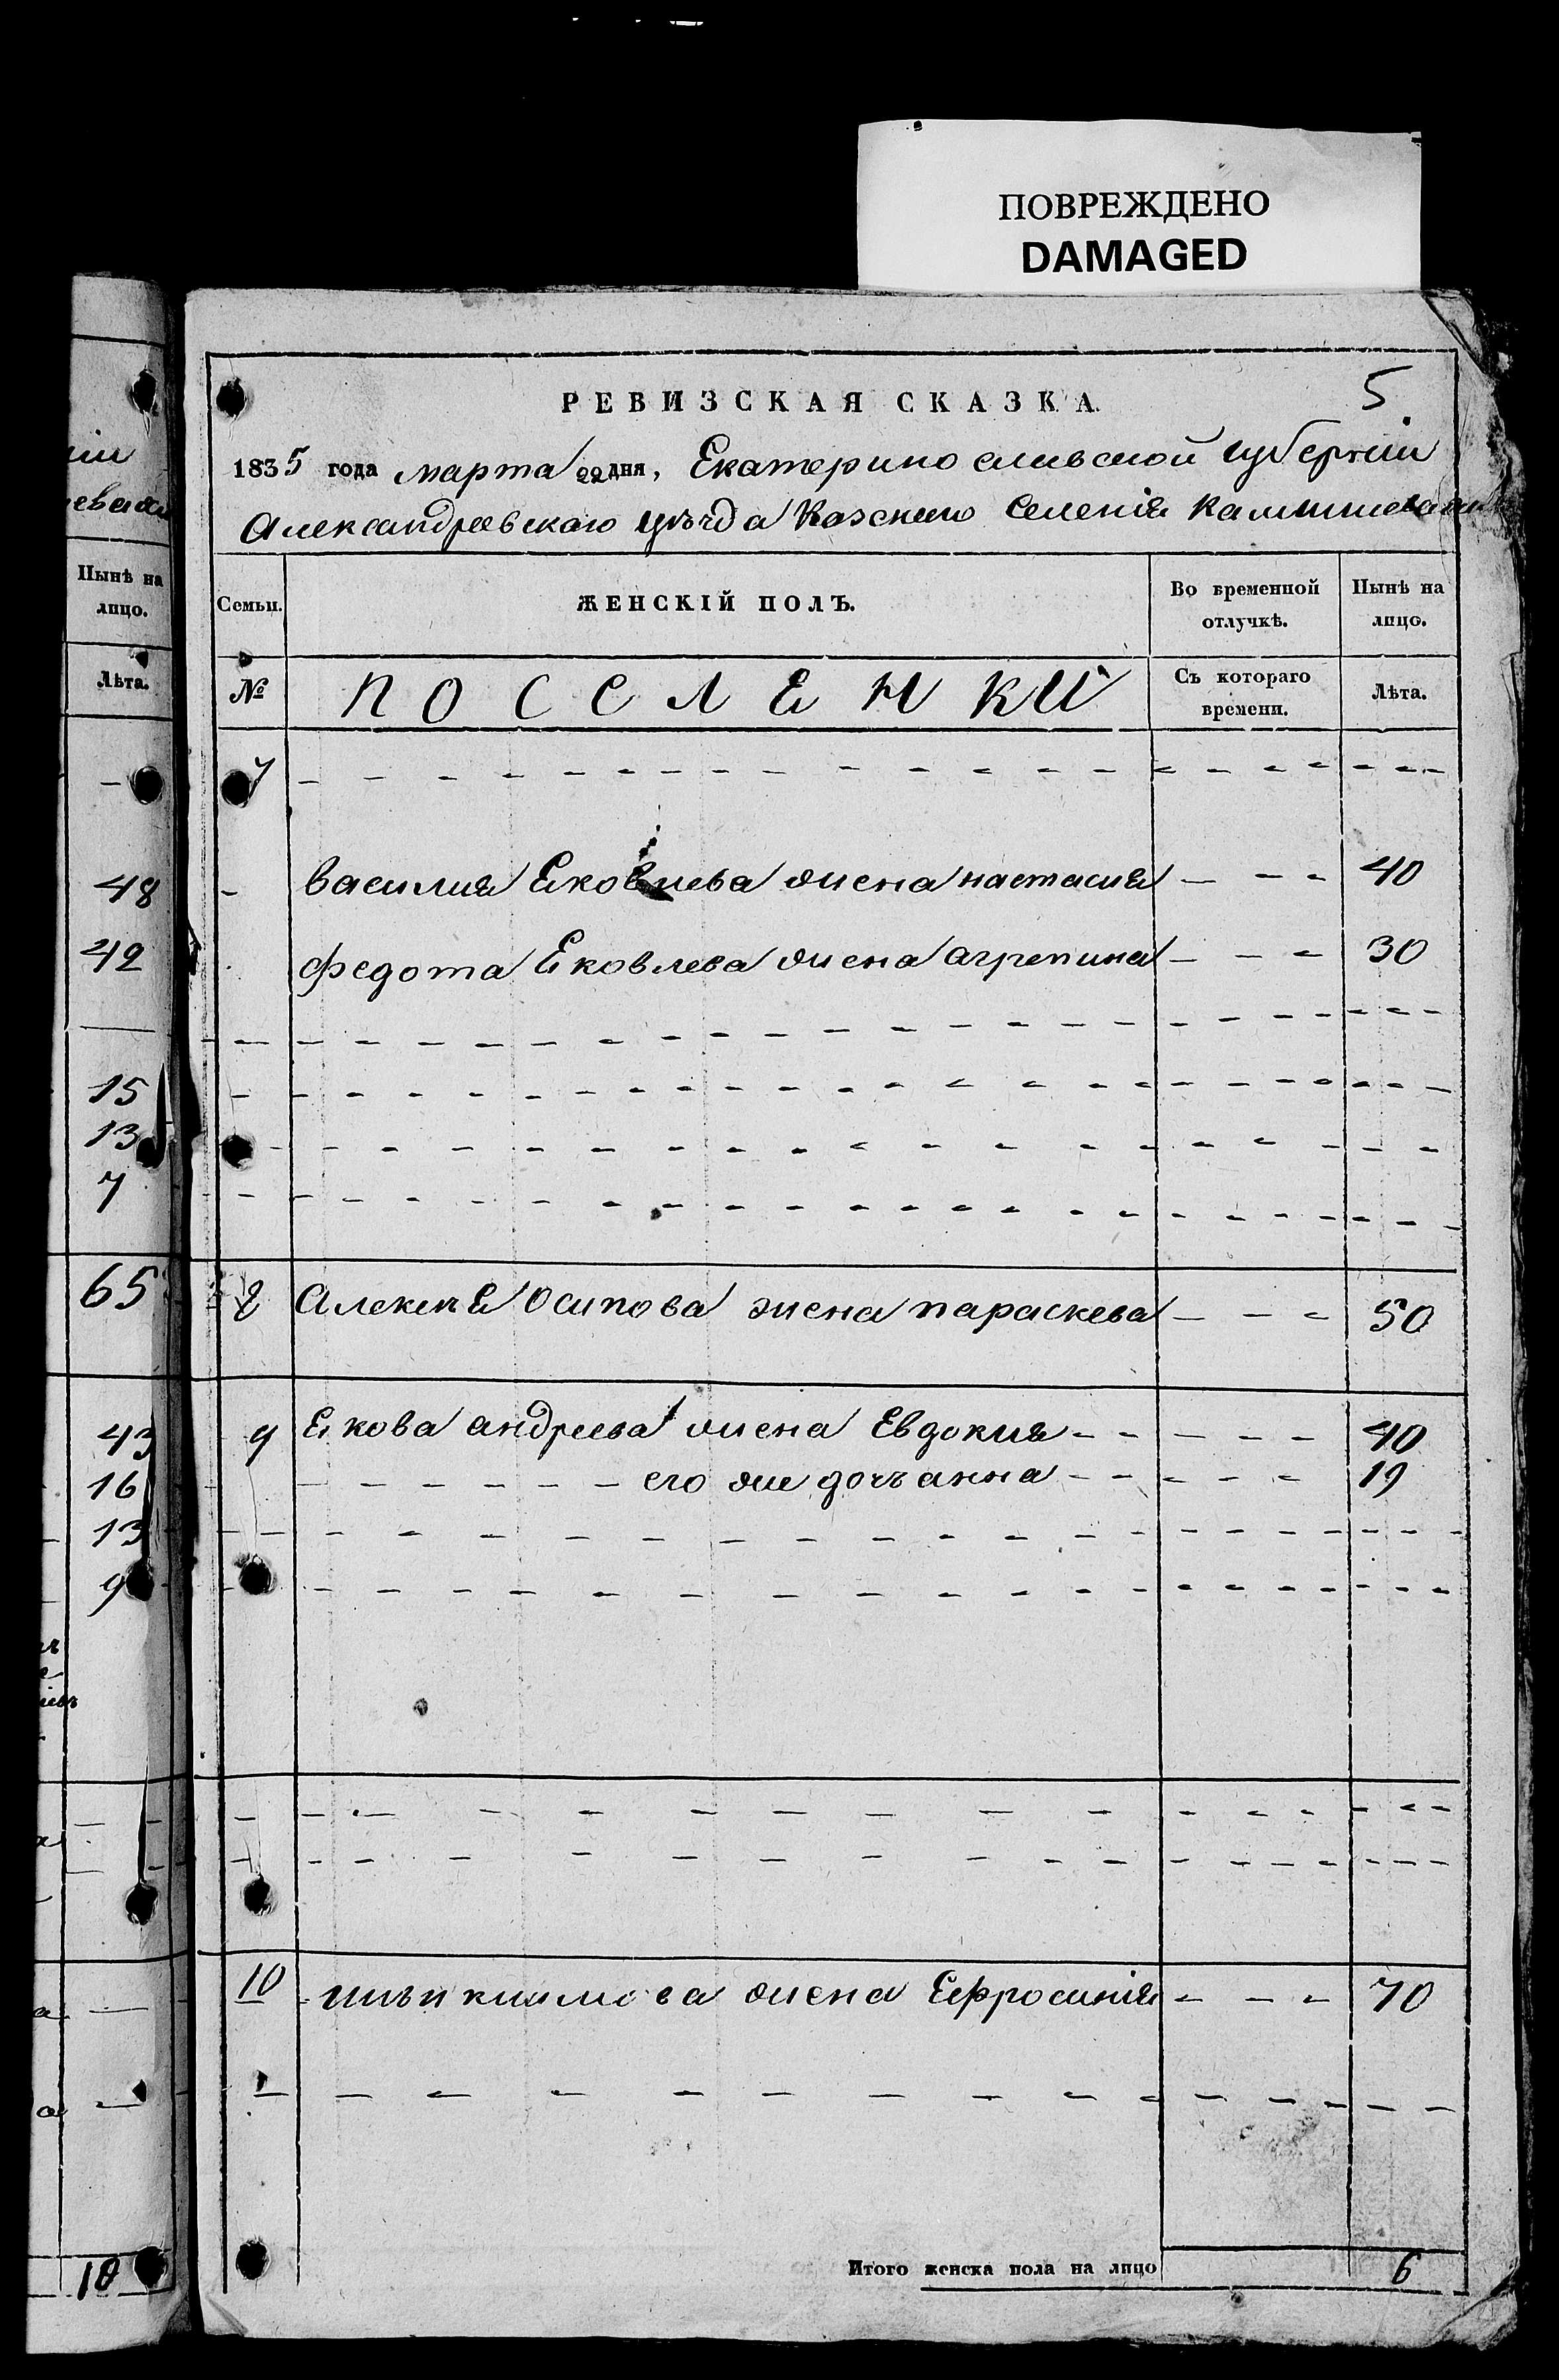 ПОВРЕЖДЕНО
DAMAGED
РЕВИЗСКАЯ СКАЗКА.
5
1835 года марта 22 дня, Екатеринославской губернии
Александровского уѣзда Казеного Селенія
Нынѣ на лицо.
Лѣта.
48
42
15
13
7
65
43
16
13
9
10
Семьи. ЖЕНСКІЙ ПОЛЪ. Во временной отлучкѣ. Нынѣ на лицо.
№ ПОСЕЛЕНКИ Съ котораго времени. Лѣта.
7
василия Ековлева жена настасия 40
федота Ековлева жена агрепина 30
8 Алексѣя Осипова жена параскева 50
9 Екова андреева жена Евдокия 40
его же дочь анна 19
10 жена Ефросинія 70
Итого женска пола на лицо 6